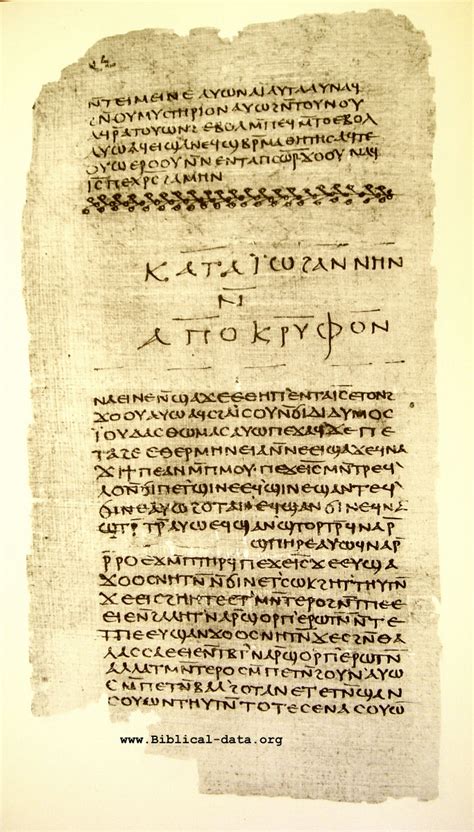 ⲛ̄ⲧⲉⲓⲙⲉⲓⲛⲉ ⲁⲩⲱ ⲛⲁⲓ ⲁⲩⲧⲁⲁⲩ ⲛⲁϥ
ϩⲛ̄ⲛⲟⲩⲙⲩⲥⲧⲏⲣⲓⲟⲛ ⲁⲩⲱ ϩⲛ̄ⲧⲟⲩⲛⲟⲩ
ⲁϥⲣ̄ⲁⲧⲟⲩⲱⲛϩ ⲉⲃⲟⲗ ⲙ̄ⲡⲉϥⲙⲧⲟ ⲉⲃⲟⲗ
ⲁⲩⲱ ⲁϥⲉⲓ ϣⲁ ⲛⲉϥϣⲃⲣⲙⲁⲑⲏⲧⲏⲥ ⲁϥⲧⲉ
ⲟⲩⲱ ⲉⲣⲟⲟⲩ ⲛ̄ⲛⲉⲛⲧⲁⲡⲥⲱⲣ ϫⲟⲟⲩ ⲛⲁϥ
ⲓ̅ⲥ̅ ⲡⲉⲭ̅ⲣ̅ⲥ̅ ϩⲁⲙⲏⲛ
ⲕⲁⲧⲁ ⲓ̈ⲱϩⲁⲛⲛⲏⲛ
ⲛ̄
ⲁⲡⲟⲕⲣⲩⲫⲟⲛ
ⲛⲁⲉⲓ ⲛⲉ ⲛ̄ϣⲁϫⲉ ⲉⲑⲏⲡ ⲉⲛⲧⲁⲓ̅ⲥ̅ ⲉⲧⲟⲛϩ
ϫⲟⲟⲩ ⲁⲩⲱ ⲁϥⲥϩⲁⲓⲥⲟⲩ ⲛ̄ϭⲓ ⲇⲓⲇⲩⲙⲟⲥ
ⲓ̈ⲟⲩⲇⲁⲥ ⲑⲱⲙⲁⲥ ⲁⲩⲱ ⲡⲉϫⲁϥ ϫⲉ ⲡⲉ
ⲧⲁϩⲉ ⲉⲑⲉⲣⲙⲏⲛⲉⲓⲁ ⲛ̄ⲛⲉⲉⲓϣⲁϫⲉ ϥⲛⲁ
ϫⲓ ϯⲡⲉ ⲁⲛ ⲙ̄ⲡⲙⲟⲩ ⲡⲉϫⲉ ⲓ̅ⲥ̅ ⲙⲛ̄ⲧⲣⲉϥ
ⲗⲟ ⲛ̄ϭⲓ ⲡⲉⲧϣⲓⲛⲉ ⲉϥϣⲓⲛⲉ ϣⲁⲛⲧⲉϥ
ϭⲓⲛⲉ ⲁⲩⲱ ϩⲟⲧⲁⲛ ⲉϥϣⲁⲛϭⲓⲛⲉ ϥⲛⲁ
ϣⲧⲣ̄ⲧⲣ̄ ⲁⲩⲱ ⲉϥϣⲁⲛϣⲧⲟⲣⲧⲣ̄ ϥⲛⲁⲣ̄
ϣⲡⲏⲣⲉ ⲁⲩⲱ ϥⲛⲁⲣ̄
ⲣ̄ⲣⲟ ⲉϫⲙ̄ ⲡⲧⲏⲣϥ ⲡⲉϫⲉ ⲓ̅ⲥ̅ ϫⲉ ⲉⲩϣⲁ
ϫⲟⲟⲥ ⲛⲏⲧⲛ̄ ⲛ̄ϭⲓ ⲛⲉⲧⲥⲱⲕ ϩⲏⲧ ⲑⲩⲧⲛ̄
ϫⲉ ⲉⲓⲥϩⲏⲏⲧⲉ ⲉⲧⲙⲛ̄ⲧⲉⲣⲟ ϩⲛ̄ ⲧⲡⲉ ⲉ
ⲉⲓⲉ ⲛ̄ϩⲁⲗⲏⲧ ⲛⲁⲣ̄ ϣⲟⲣⲡ ⲉⲣⲱⲧⲛ̄ ⲛ̄ⲧⲉ
ⲧⲡⲉ ⲉⲩϣⲁⲛϫⲟⲟⲥ ⲛⲏⲧⲛ̄ ϫⲉ ⲥϩⲛ̄ ⲑⲁ
ⲗⲁⲥⲥⲁ ⲉⲉⲓⲉ ⲛ̄ⲧⲃⲧ ⲛⲁⲣ̄ ϣⲟⲣⲡ ⲉⲣⲱⲧⲛ̄
ⲁⲗⲗⲁ ⲧⲙⲛ̄ⲧⲉⲣⲟ ⲥⲙ̄ⲡⲉⲧⲛ̄ϩⲟⲩⲛ ⲁⲩⲱ
ⲥⲙ̄ⲡⲉⲧⲛ̄ⲃⲁⲗ ϩⲟⲧⲁⲛ ⲉⲧⲉⲧⲛ̄ϣⲁⲛ
ⲥⲟⲩⲱⲛ ⲑⲩⲧⲛ̄ ⲧⲟⲧⲉ ⲥⲉⲛⲁⲥⲟⲩⲱ
www.Biblical-data.org